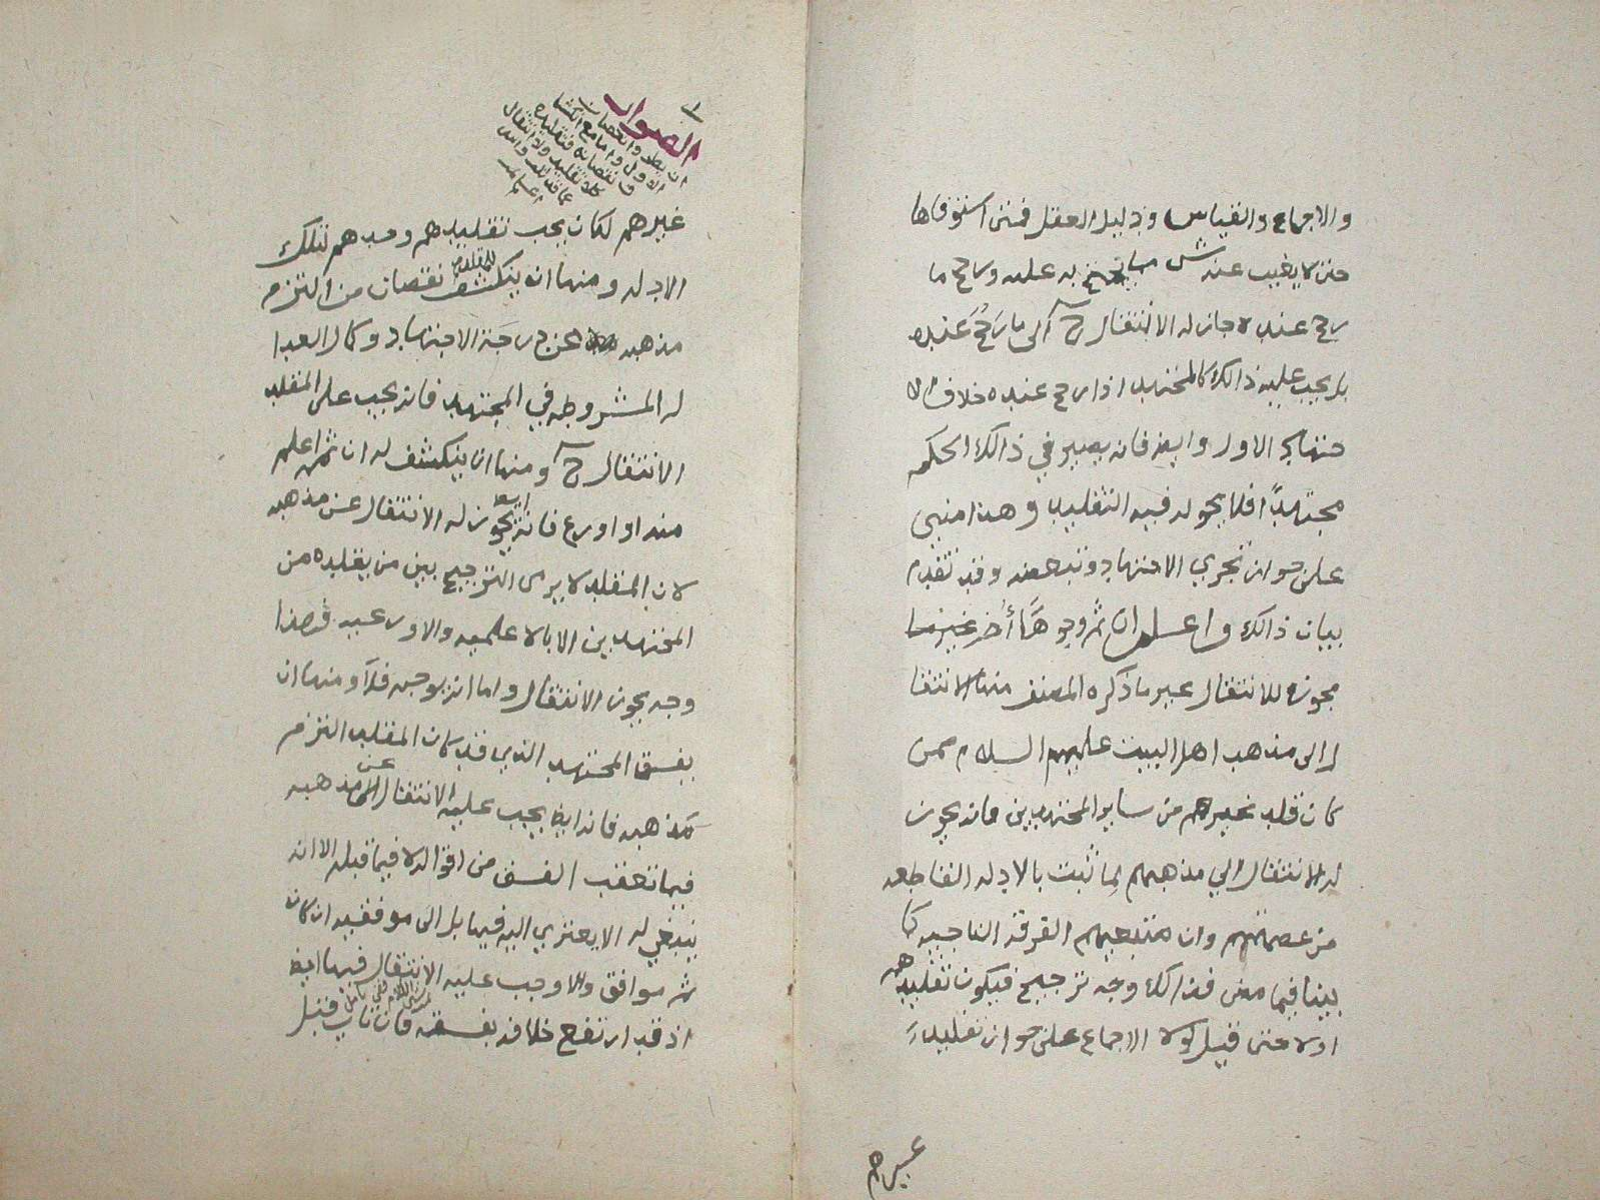 والاجماع والقياس ودليل العقل فمتى استوفاها
حتى لا يغيب عنه ش مما يحتج به عليه ورجح ما
رجح عنده جاز له الانتقال ح الى ما رجح عنده
بل يجب عليه ذالك كالمجتهد اذا رجح عنده خلاف
جتهاد الاول وايضا فانه يصير في ذالك الحكم
مجتهدًا فلا يجو له فيه التقليد وهذا منبي
على جواز تجزي الاجتهاد وتبعضه وقد تقدم
بيان ذالك واعلم ان ثم وجوهًا أخر غيرها
مجوزه للانتقال غير ما ذكره المصنف منها الانتقا
ل الى مذهب اهل البيت عليهم السلام ممن
كان قلد غيرهم من ساير المجتهدين فانه يجوز
له الانتقال الي مذهبهم لما ثبت بالادله القاطعه
من عصمتهم وان متبعيهم الفرقة الناجيه كما
بينا فيما مضى فذالك وجه ترجيح فيكون تقليدهم
اولا حتى قيل لولا الاجماع على جواز تقليد
غيرهم
الصواب
غيرهم لكان يجب تقليدهم وحدهم لتلك
الادله ومنها ان ينكشف للمقلد نقصان من التزم
مذهبه عن درجة الاجتهاد وكمال العدا
له المشروطه في المجتهد فانه يجب على المقلد
الانتقال ح ومنها ان ينكشف له ان ثم اعلم
منه او اورع فانه يجوز ايضا له الانتقال عن مذهبه
لان المقلد لا يرى الترجيح بين من يقلده من
المجتهدين الا بالاعلميه والاورعيه فهذا
وجه يجوز الانتقال واما انه يوجبه فلا ومنها ان
يفسق المجتهد الذي قد كان المقلد التزم
مذهبه فانه ايضا يجب عليه الانتقال عن مذهبه
فيما تعقب الفسق من اقواله لا فيما قبله الا انه
ينبغي له الا يعتزي اليه فيها بل الى موافقيه ان كان
ثم موافق والا وجب عليه الانتقال فيها ايضا
اذ قد ارتفع خلافه بفسقه فان تاب قبل